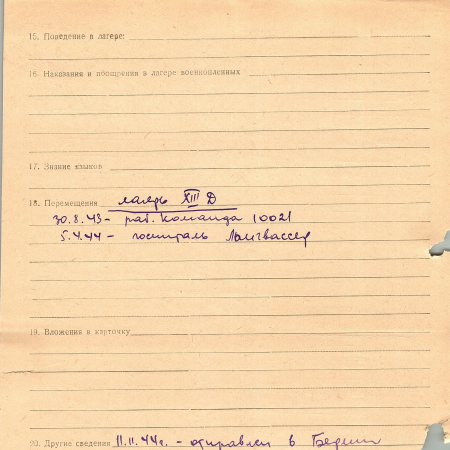 15. Поведение в лагере:
16. Наказания и поощрения в лагере военнопленных
17. Знание языков
18. Перемещения лагерь XIII D
30.8.43 - раб. команда 10021
5.4.44 - госпиталь Лангвассер
19. Вложения в карточку
20. Другие сведения 11.11.44г. - отправлен в Берлин